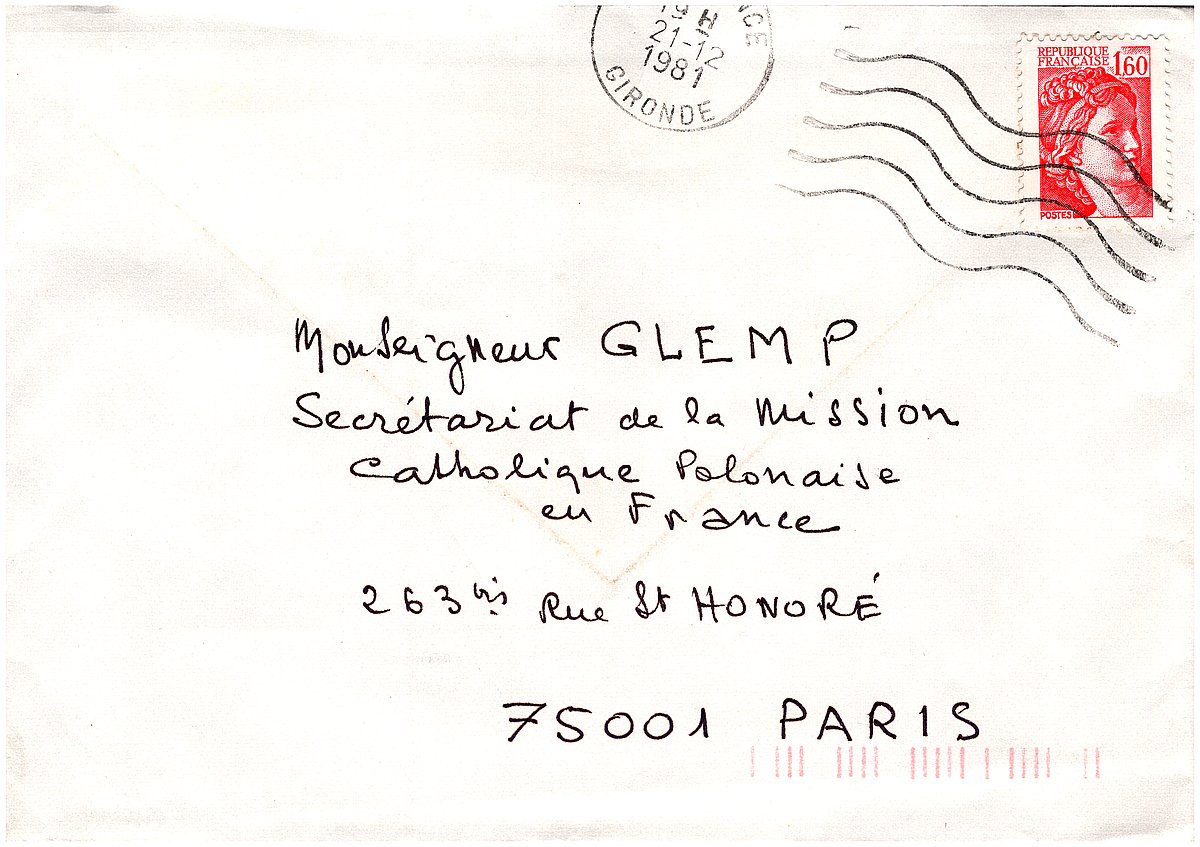 19 H
21-12
1981
GIRONDE
REPUBLIQUE
FRANÇAISE 1,60
POSTES
Monseigneur GLEMP
Secrétariat de la Mission
Catholique Polonaise
en France
263 bis Rue St HONORÉ
75001 PARIS